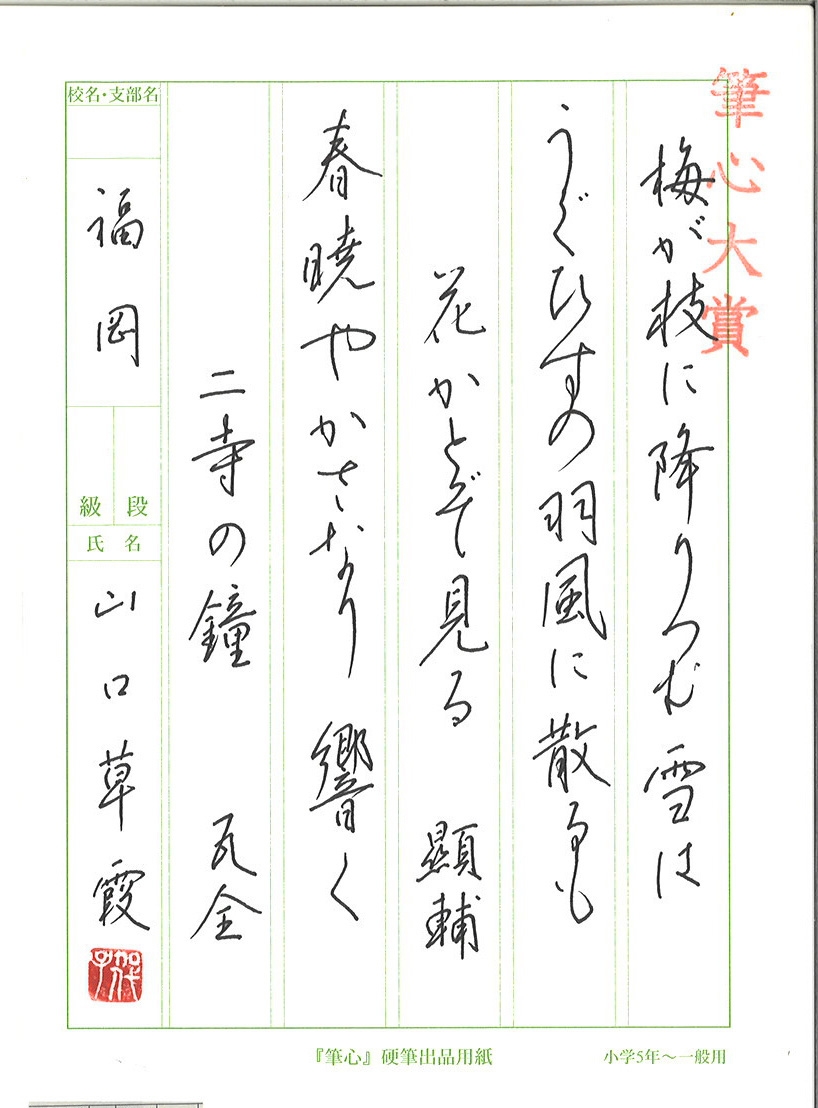 筆心大賞
梅が枝に降りつむ雪は
うぐひすの羽風に散るも
花かとぞ見る 顕輔
春暁やかさなり響く
二寺の鐘 瓦全
校名・支部名
福岡
級 段
氏名
山口草霞
『筆心』硬筆出品用紙
小学5年〜一般用